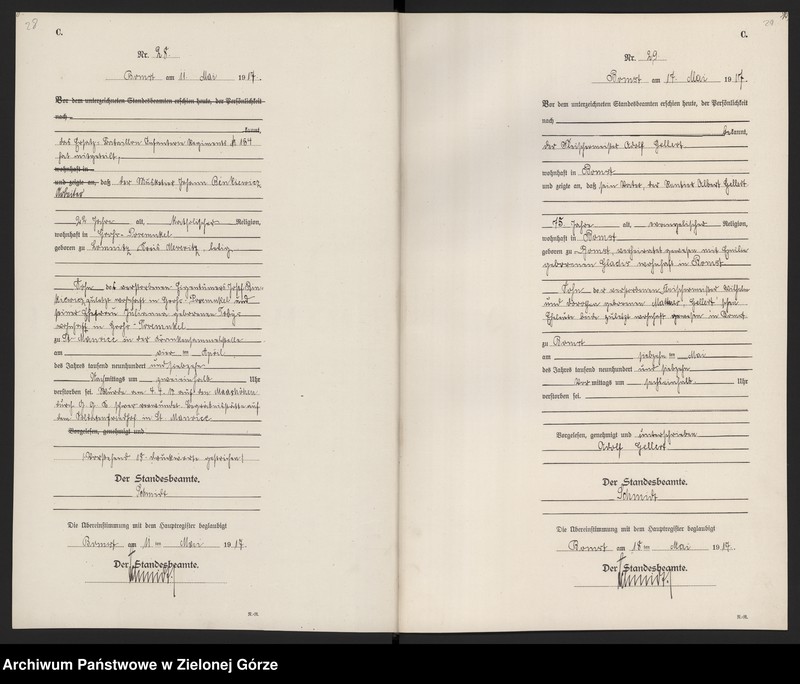 28
C.
Nr. 28.
Bomst am 11. Mai 1917.
Vor dem unterzeichneten Standesbeamten erschien heute, der Persönlichkeit
nach
kannt,
das Ersatz-Bataillon Infanterie Regiments № 184
hat mitgeteilt,
wohnhaft in
und zeigte an, daß der Musketier Johann Binkiewicz,
Arbeiter
Jahre alt, katholischer Religion,
wohnhaft in Groß-Posemukel
geboren zu Lomnitz, Kreis Meseritz, ledig
Sohn des verstorbenen Eigentümers Josef Bin-
kiewicz zuletzt wohnhaft in Groß-Posemukel und
seiner Ehefrau Julianna geborenen
wohnhaft in Groß-Posemukel
zu St. Maurice in der Krankensammelstelle
am vier ten April
des Jahres tausend neunhundert und siebzehn
Nachmittags um Uhr
verstorben sei. Wurde am 4. 4. 17 auf den Maashöhen
durch A. G. schwer verwundet. Begräbnisstätte auf
dem Soldatenfriedhof in St. Maurice
Vorgelesen, genehmigt und
(Vorstehend 15 Druckworte gestrichen)
Der Standesbeamte.
Schmidt
Die Übereinstimmung mit dem Hauptregister beglaubigt
Bomst am 11 ten Mai 1917.
Der Standesbeamte.
Schmidt.
R.-R.
29
C.
Nr. 29.
Bomst am 17. Mai 1917.
Vor dem unterzeichneten Standesbeamten erschien heute, der Persönlichkeit
nach
bekannt,
der Fleischermeister Adolf Gellert
wohnhaft in Bomst
und zeigte an, daß sein Vater, der Rentier Albert Gellert
75 Jahre alt, evangelischer Religion,
wohnhaft in Bomst
geboren zu Bomst, verheiratet gewesen mit Emilie
geborenen wohnhaft in Bomst
Sohn der verstorbenen Fleischermeister Wilhelm
und Dorothea geborenen Gellert'schen
Eheleute beide zuletzt wohnhaft gewesen in Bomst
zu Bomst
am siebzehn ten Mai
des Jahres tausend neunhundert und siebzehn
Vor mittags um Uhr
verstorben sei.
Vorgelesen, genehmigt und unterschrieben
Adolf Gellert
Der Standesbeamte.
Schmidt
Die Übereinstimmung mit dem Hauptregister beglaubigt
Bomst am 18 ten Mai 1917.
Der Standesbeamte.
Schmidt.
R.-R.
Archiwum Państwowe w Zielonej Górze